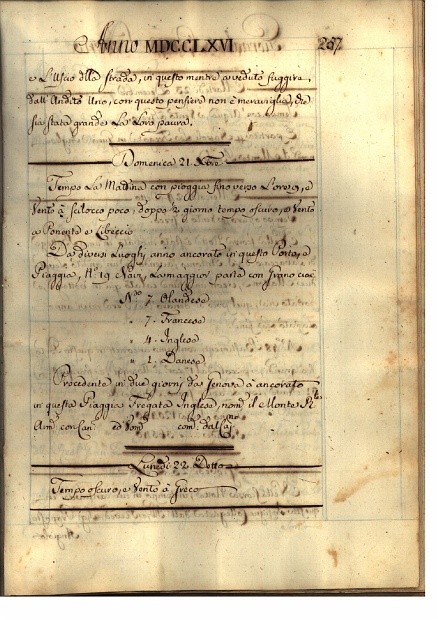 Anno MDCCLXVI 257
e L'Uscio della strada, in questo mentre a veduto fuggire,
dall'Andito Uno, con questo pensiere non è meraviglia, che
sia stata grande La Loro paura.
Domenica 21. Xbre
Tempo La Mattina con pioggia fino verso L'ore 9, e
Vento à Scilocco poco, doppo ½ giorno tempo oscuro, e Vento
a Ponente e Libeccio
Da diversi Luoghi anno ancorato in questo Porto, e
Piaggia, N.º 19 Navi, La maggior parte con grano cioè,
N.º 7. Olandese
" 7. Francese
" 4. Inglese
" 1. Danese
Procedente in due giorni da Genova à ancorato
in questa Piaggia Fregata Inglese, nom.ª il Monte Rle
Arm.ª con Can. ed Uom. com. dal Cap.
Lunedi 22 Detto
Tempo oscuro, e Vento à Greco